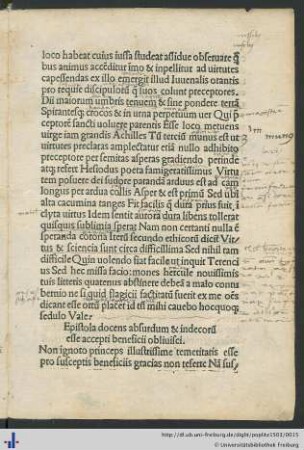 loco habeat cuius iussa studeat assidue obseruare q̄
bus animus accēditur imo & inpellitur ad uirtutes
capessendas ex illo emergit illud Iuuenalis orantis
pro requie discipulorū q̄ suos colunt preceptores.
Dii maiorum umbris tenuem & sine pondere terrā
Spirantesq; crocos & in urna perpetuum uer Qui p̄
ceptorē sancti uoluere parentis esse loco metuens
uirge iam grandis Achilles Tū terciū munus est ut
uirtutes preclaras amplectatur etiā nullo adhibito
preceptore per semitas asperas gradiendo perinde
atq; refert Hesiodus poeta famigeratissimus Virtu
tem posuere dei sudore paranda arduus est ad eam
longus per ardua collis Asper & est primū Sed ubi
alta cacumina tanges Fit facilis q̄ dura prius fuit, i
clyta uirtus Idem sentit aurora dura libens tollerat
quisquis sublimia sperat Nam non certanti nulla ē
speranda corona Item secundo ethicorū dicit Vir
tus & sciencia sunt circa difficillima Sed nihil tam
difficile Quin uolendo fiat facile ut inquit Terenci
us Sed hec missa facio: mones hercule nouissimis
tuis litteris quatenus abstinere debeā a malo contu
bernio ne si quid flagicii factitatū fuerit ex me oēs
dicant esse ortū placet id ēst mihi cauebo hocquoq;
sedulo Vale:
Epistola docens absurdum & indecorū
esse accepti beneficii obliuisci.
Non ignoto princeps illustrissime temeritatis esse
pro susceptis beneficiis gracias non referre Nā sus,
http://dl.ub.uni-freiburg.de/diglit/psydita1503/0015
Universitätsbibliothek Freiburg